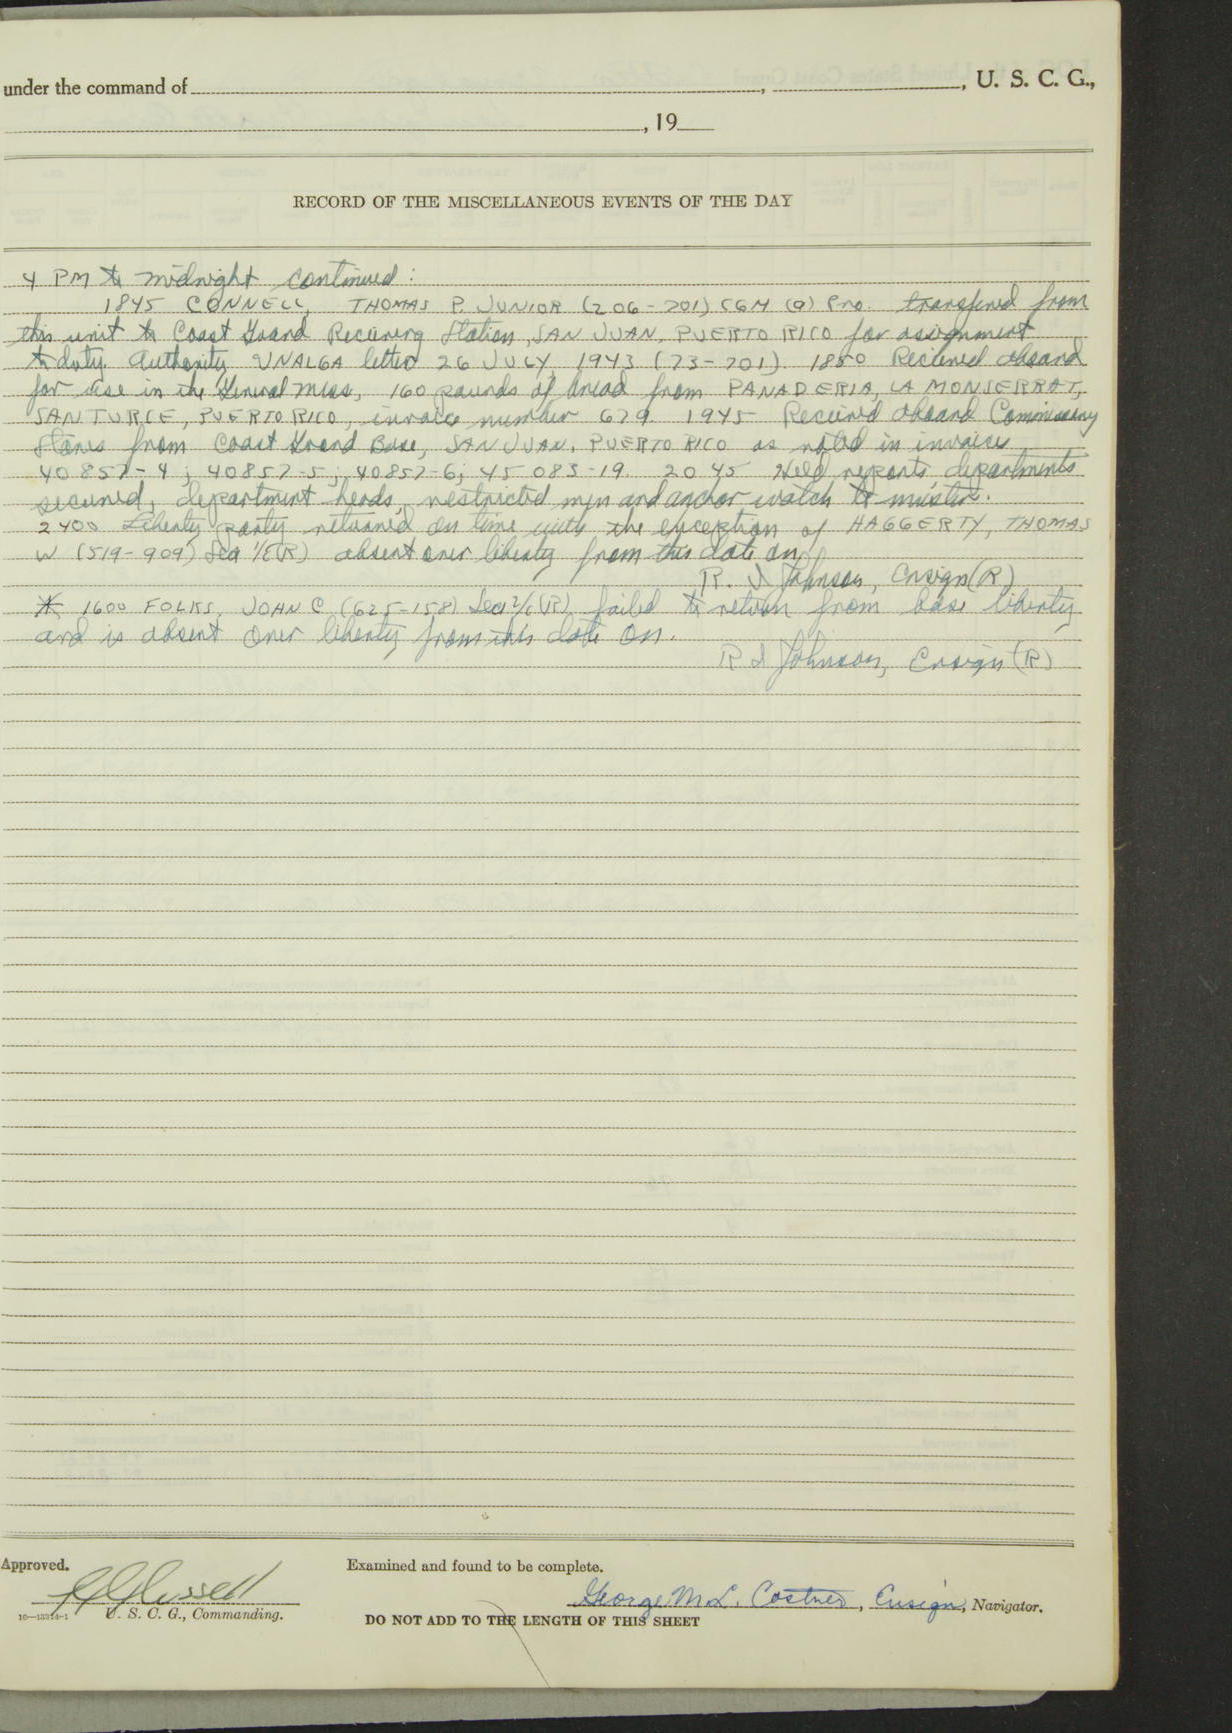 under the command of , , U. S. C. G.,
, 19
RECORD OF THE MISCELLANEOUS EVENTS OF THE DAY
4 PM to midnight continued:
1845 CONNELL, THOMAS P. JUNIOR (206-701) CGM (a) Pro. transfered from
this unit to Coast Guard Receiving Station, SAN JUAN, PUERTO RICO for assignment
to duty. Authority UNALGA letter 26 JULY, 1943 (73-701). 1850 Recieved aboard
for use in the General Mess, 160 pounds of bread from PANADERIA, LA MONSERRAT,
SANTURCE, PUERTO RICO, invoice number 679. 1945 Received aboard Commissary
Stores from Coast Guard Base, SAN JUAN, PUERTO RICO as noted in invoices
40857-4; 40857-5; 40857-6; 45083-19. 2045 Held reports, departments
secured, department heads, restricted men and anchor watch to muster.
2400 Liberty party returned on time with the exception of HAGGERTY, THOMAS
W (519-909) Sea 1/c(R) absent over liberty from this date on.
R. I Johnson, Ensign (R)
* 1600 FOLKS, JOHN C (625-158) Sea 2/c (R), failed to return from base liberty
and is absent over liberty from this date on.
R I Johnson, Ensign (R)
Approved. Examined and found to be complete.
George McL. Costner, Ensign, Navigator.
U. S. C. G., Commanding.
DO NOT ADD TO THE LENGTH OF THIS SHEET